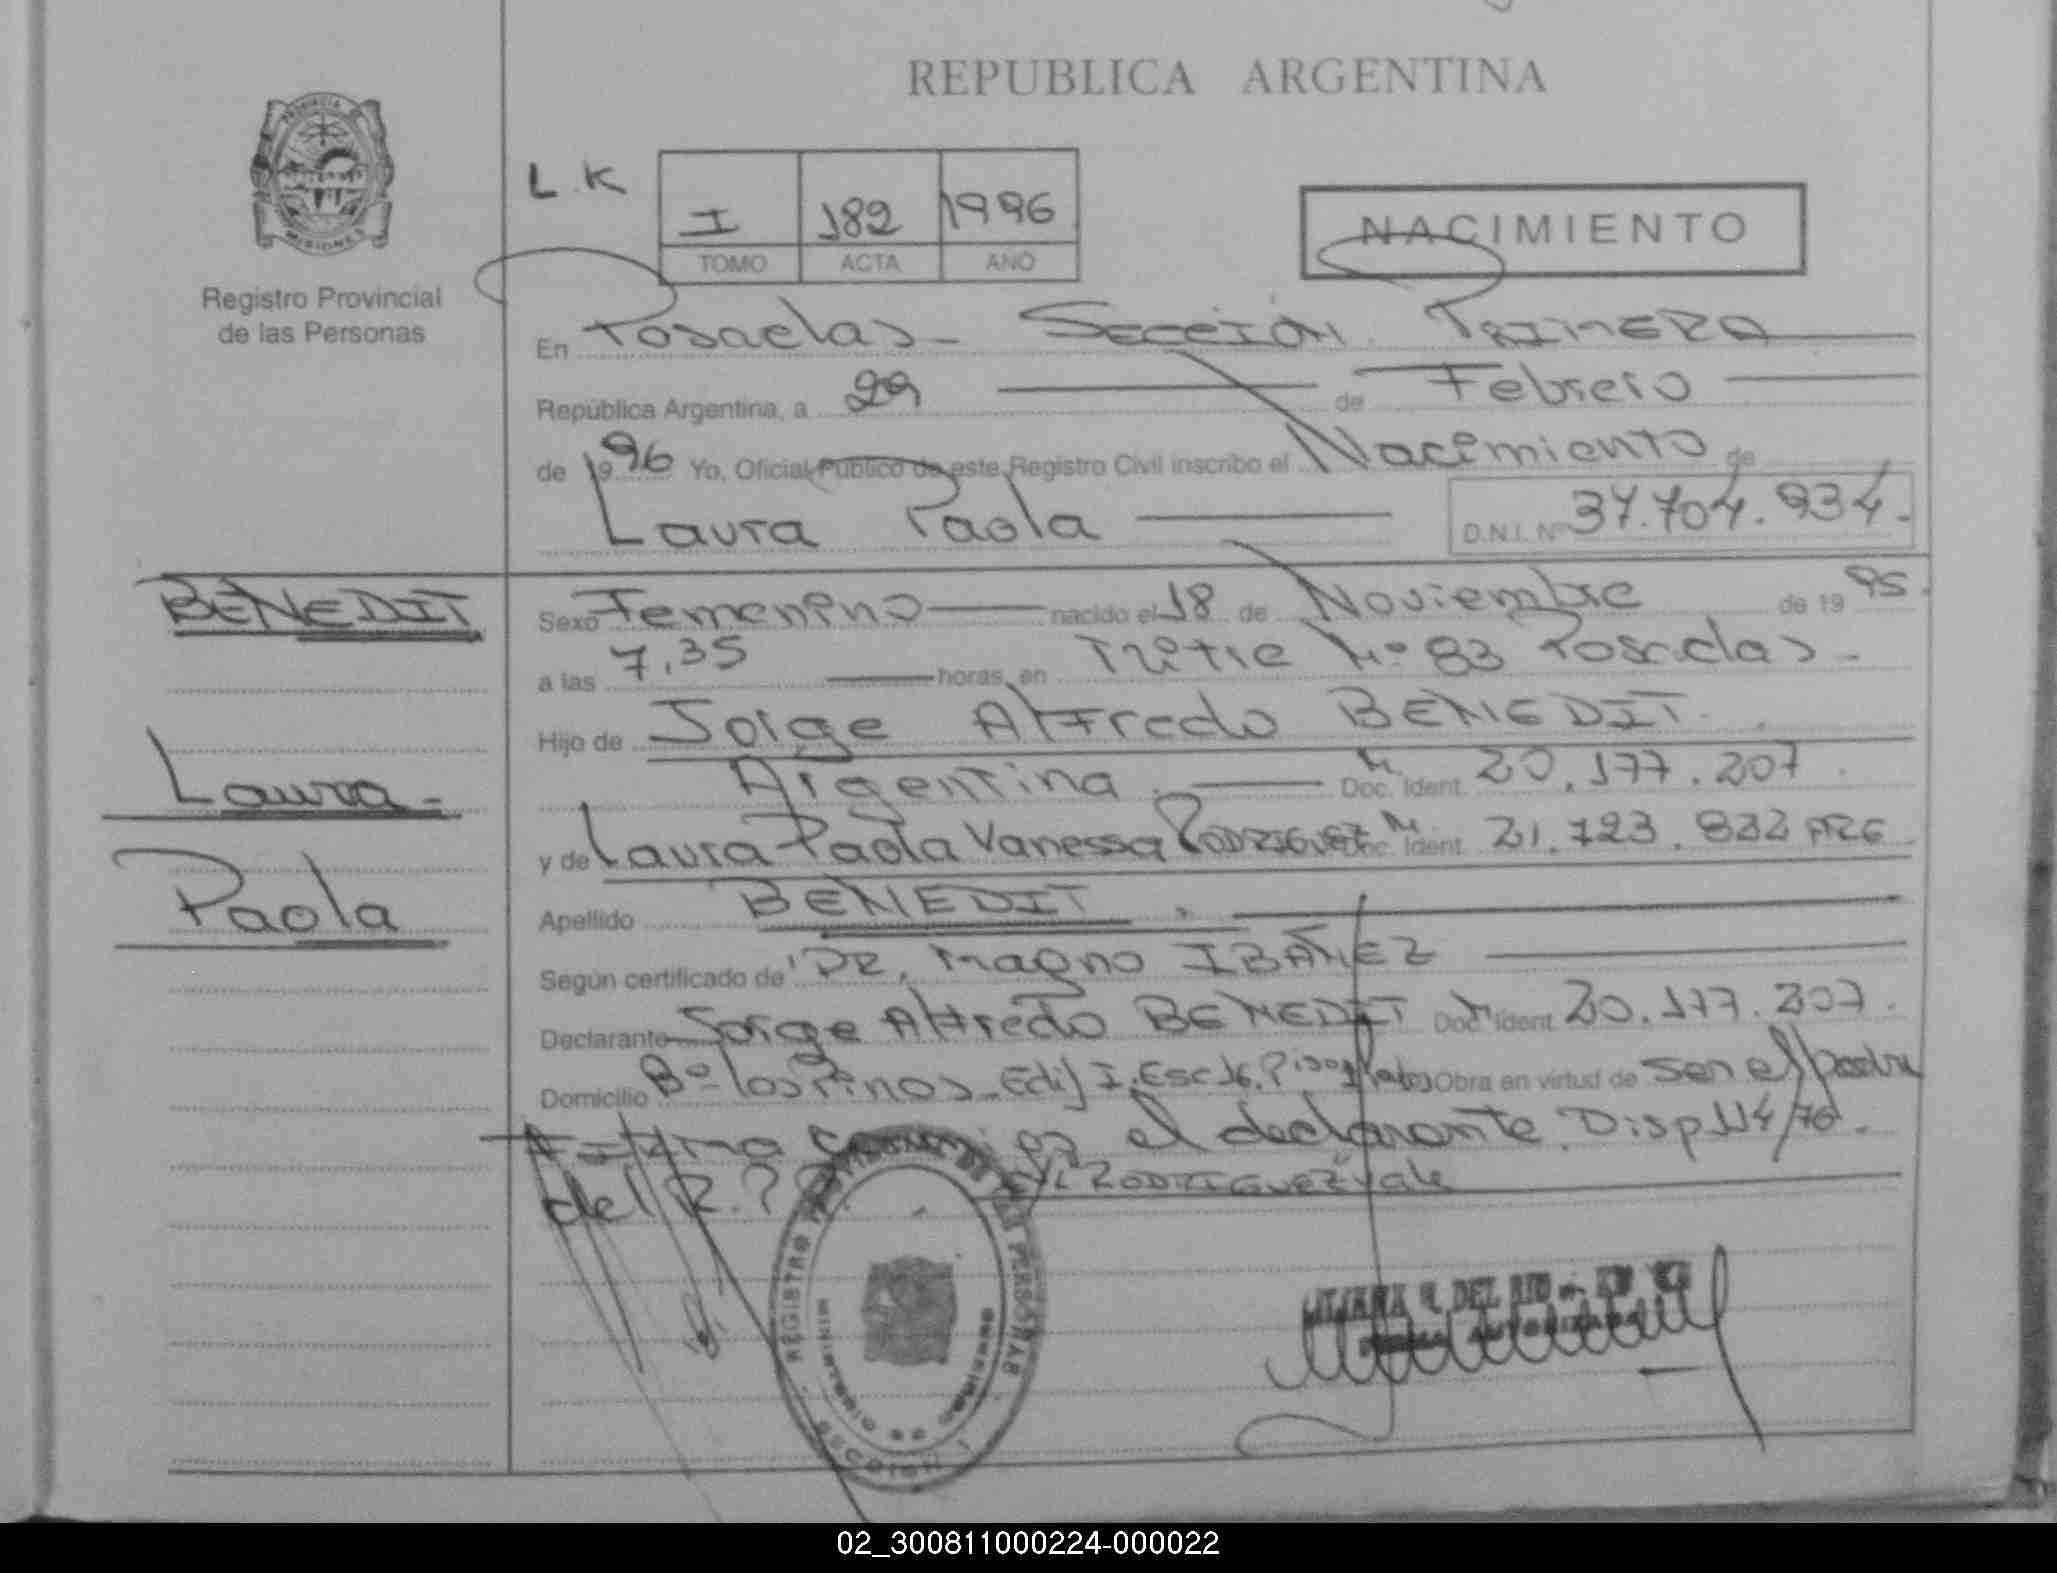 REPUBLICA ARGENTINA
PROVINCIA DE
MISIONES
Registro Provincial
de las Personas
L.K
I 182 1996
TOMO ACTA AÑO
NACIMIENTO
En Posadas - SECCIÓN PRIMERA
República Argentina, a 29 de Febrero
de 1996 Yo, Oficial Público de este Registro Civil inscribo el Nacimiento de
Laura Paola D.N.I. Nº 37.704.934.
BENEDIT
Laura-
Paola
Sexo Femenino nacido el 18 de Noviembre de 1995.
a las 7,35 horas, en Nº 83 Posadas-
Hijo de Jorge Alfredo BENEDIT.
Argentina. Doc. Ident. 20.177.207.
y de Laura Paola Vanessa RODRIGUEZ Doc. Ident. 21.723.832 ARG
Apellido BENEDIT.
Según certificado de DR. Magno IBAÑEZ
Declarante Jorge Alfredo BENEDIT Doc. Ident. 20.177.207.
Domicilio Bº los Pinos_ Edif I. Esc 16. Piso Obra en virtud de ser el padre
Firma conmigo el declarante. Disp 114/70.
del R.P.P. RODRIGUEZ vale
REGISTRO PROVINCIAL DE LAS PERSONAS
MINISTERIO DE GOBIERNO
SECCION 1
DEL RIO
02_300811000224-000022